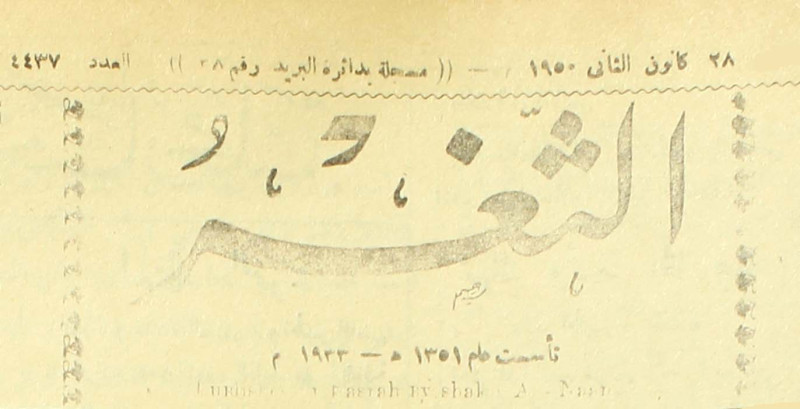 ٢٨ كانون الثاني ١٩٥٠ — (( مسجلة بدائرة البريد رقم ٢٨ )) العدد ٤٤٣٧
الثغر
تأسست عام ١٣٥١ هـ — ١٩٣٣ م